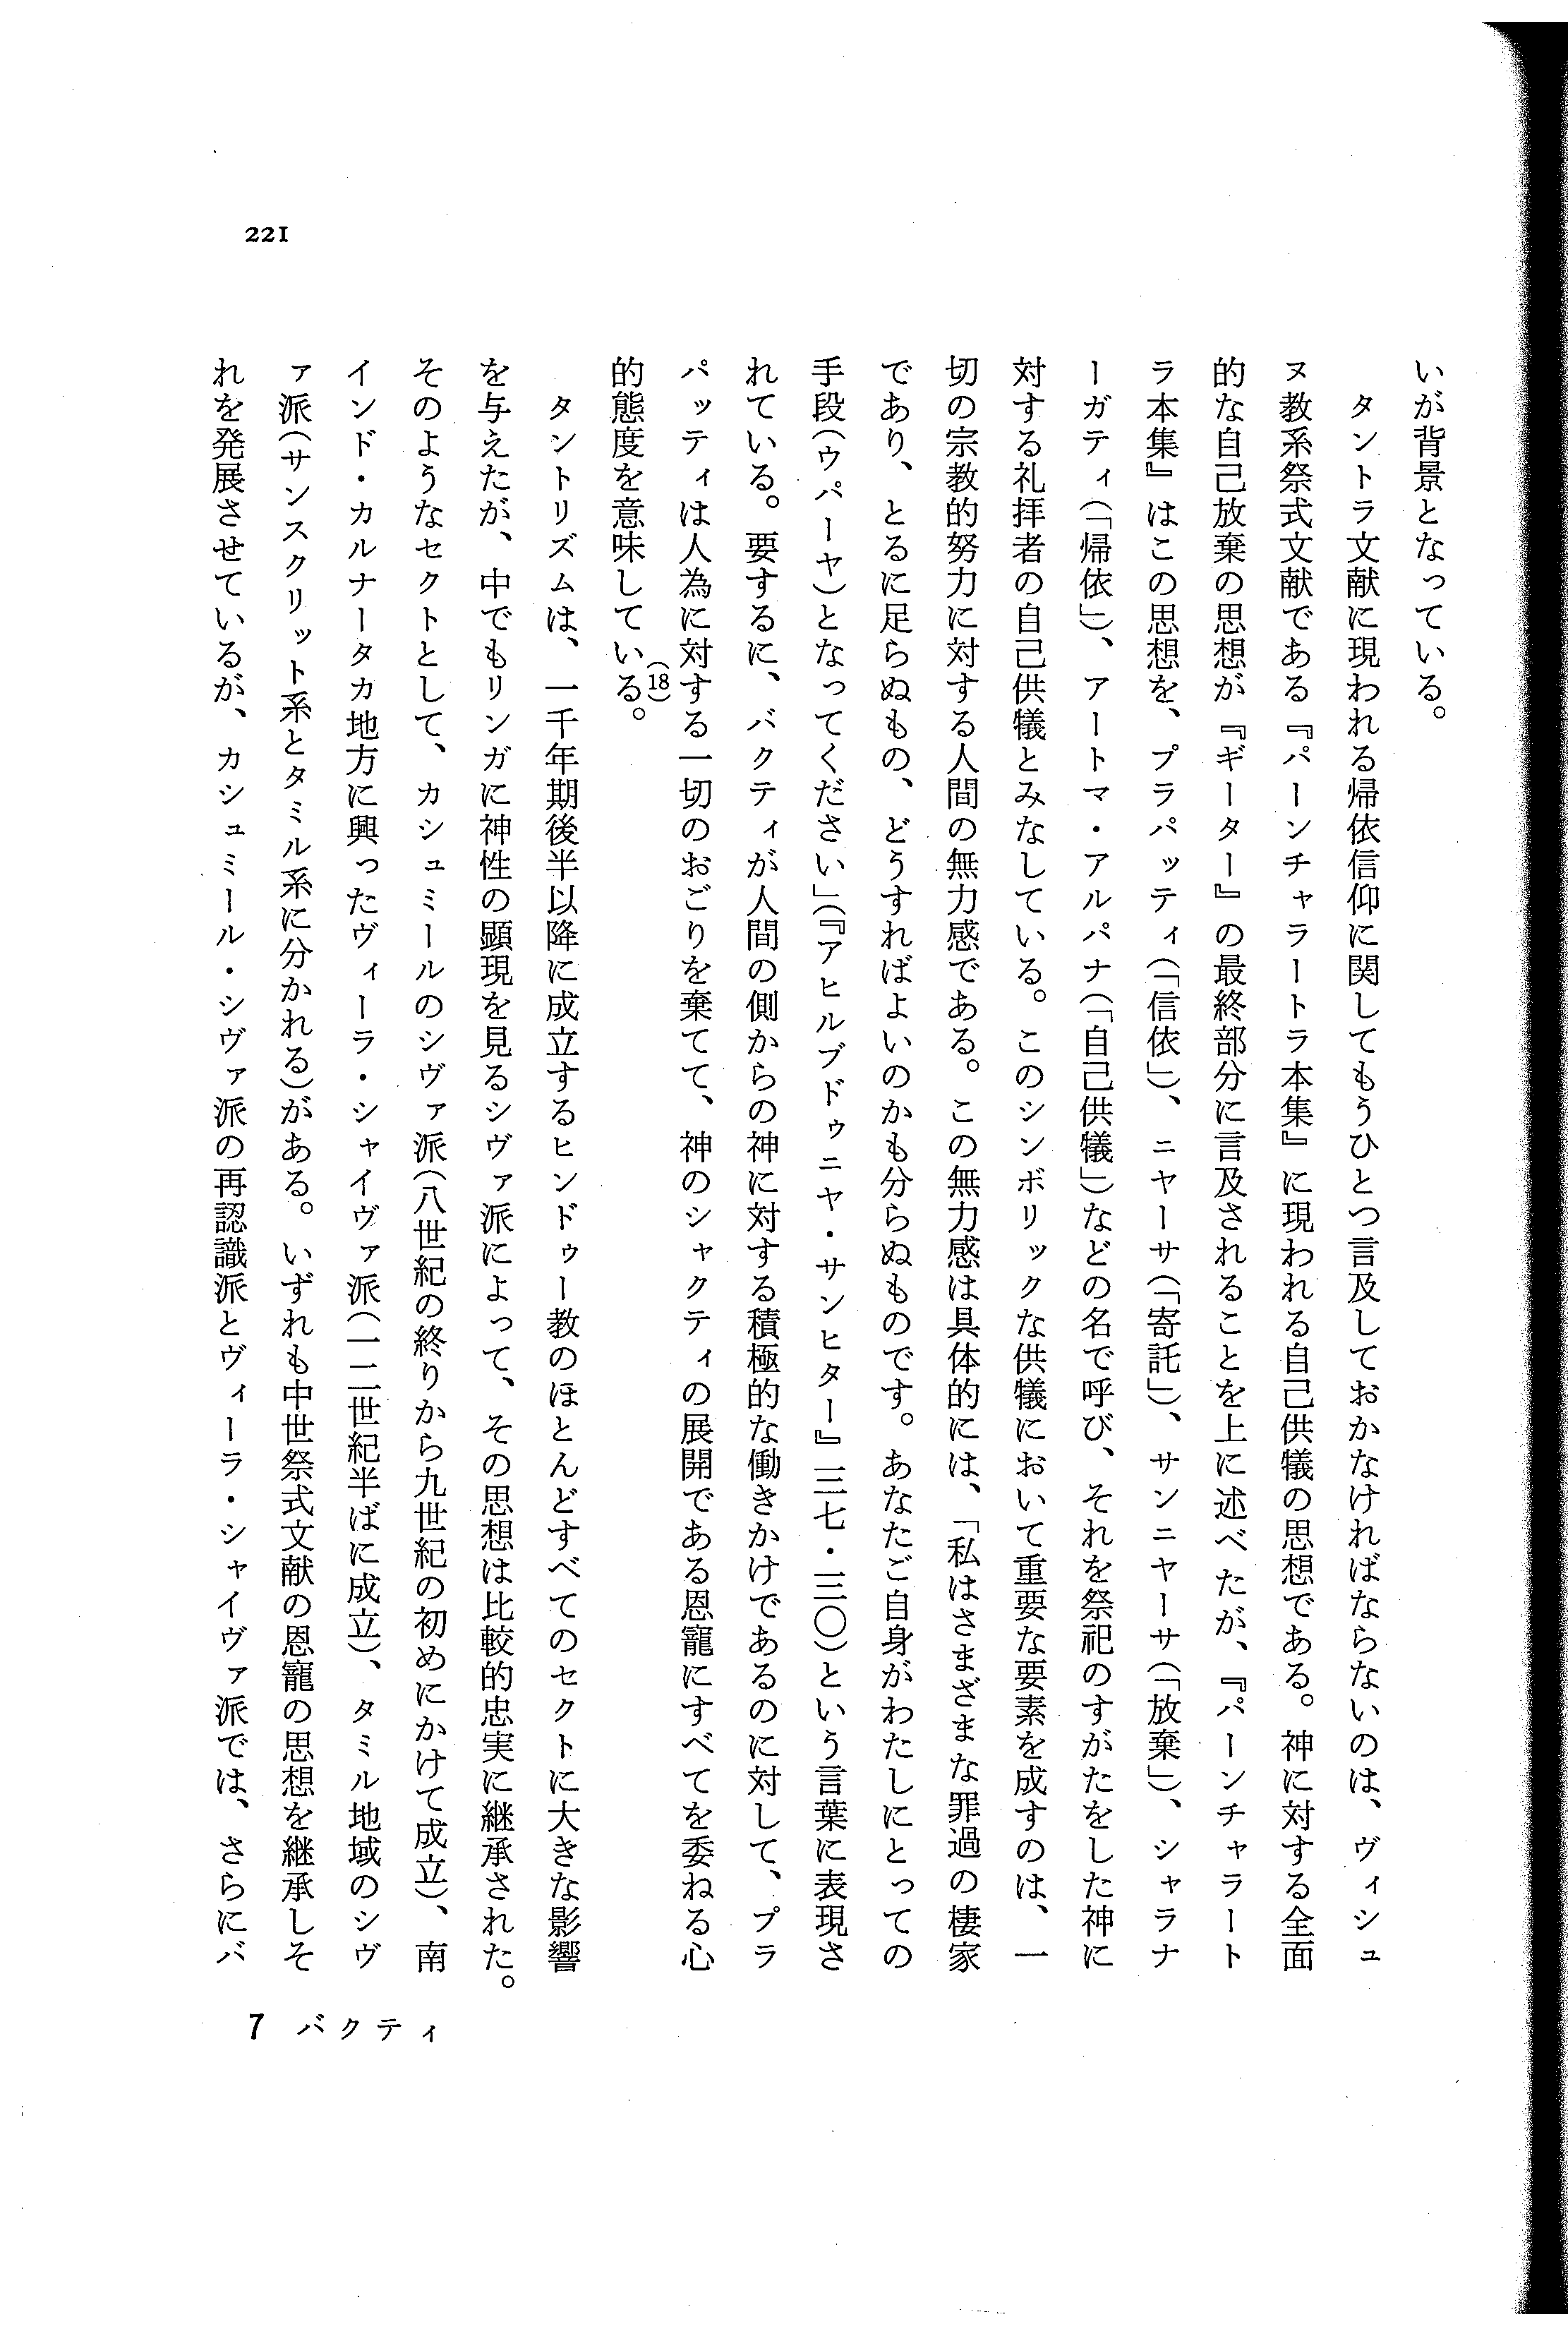 いが背景となっている。
タントラ文献に現われる帰依信仰に関してもうひとつ言及しておかなければならないのは、ヴィシュ
ヌ教系祭式文献である『パーンチャラートラ本集』に現われる自己供犠の思想である。神に対する全面
的な自己放棄の思想が『ギーター』の最終部分に言及されることを上に述べたが、『パーンチャラート
ラ本集』はこの思想を、プラパッティ(「信依」)、ニヤーサ(「寄託」)、サンニヤーサ(「放棄」)、シャラナ
ーガティ(「帰依」)、アートマ・アルパナ(「自己供犠」)などの名で呼び、それを祭祀のすがたをした神に
対する礼拝者の自己供犠とみなしている。このシンボリックな供犠において重要な要素を成すのは、一
切の宗教的努力に対する人間の無力感である。この無力感は具体的には、「私はさまざまな罪過の棲家
であり、とるに足らぬもの、どうすればよいのかも分らぬものです。あなたご自身がわたしにとっての
手段(ウパーヤ)となってください」(『アヒルブドゥニヤ・サンヒター』三七・三〇)という言葉に表現さ
れている。要するに、バクティが人間の側からの神に対する積極的な働きかけであるのに対して、プラ
パッティは人為に対する一切のおごりを棄てて、神のシャクティの展開である恩寵にすべてを委ねる心
的態度を意味している。(18)
タントリズムは、一千年期後半以降に成立するヒンドゥー教のほとんどすべてのセクトに大きな影響
を与えたが、中でもリンガに神性の顕現を見るシヴァ派によって、その思想は比較的忠実に継承された。
そのようなセクトとして、カシュミールのシヴァ派(八世紀の終りから九世紀の初めにかけて成立)、南
インド・カルナータカ地方に興ったヴィーラ・シャイヴァ派(一二世紀半ばに成立)、タミル地域のシヴ
ァ派(サンスクリット系とタミル系に分かれる)がある。いずれも中世祭式文献の恩寵の思想を継承しそ
れを発展させているが、カシュミール・シヴァ派の再認識派とヴィーラ・シャイヴァ派では、さらにバ
221
7 バクティ